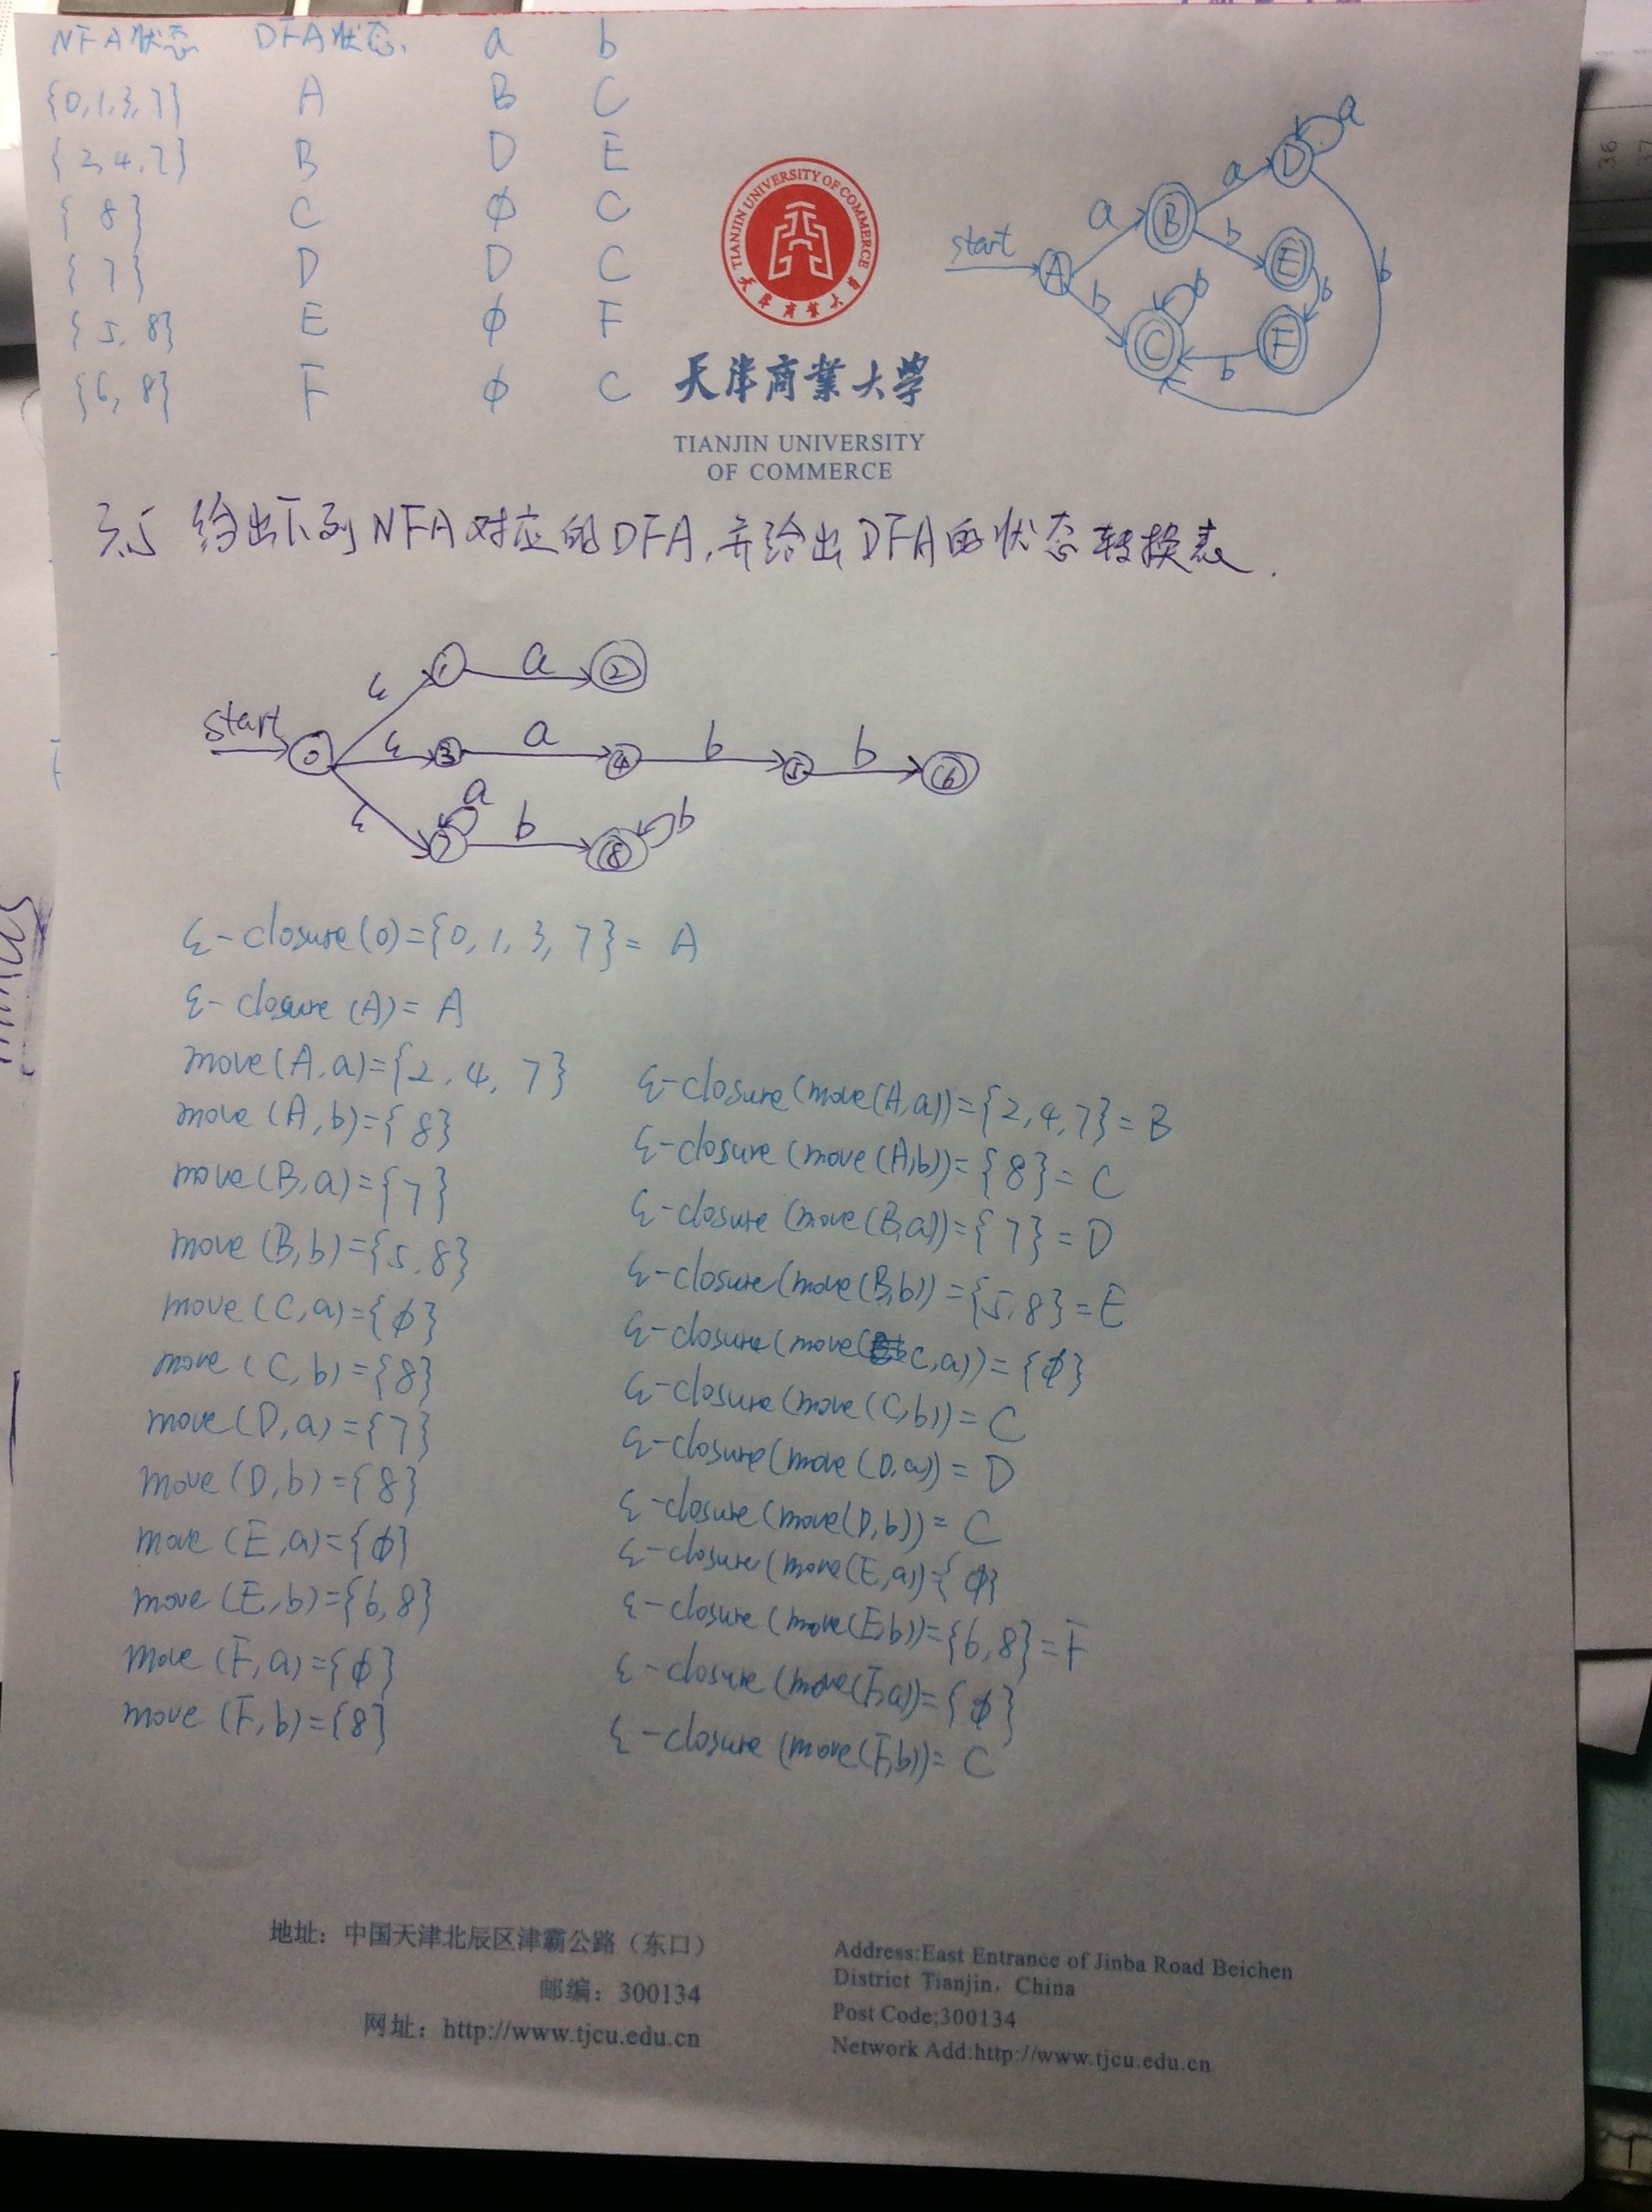 NFA状态 DFA状态. a b
{0,1,3,7} A B C
{2,4,7} B D E
{8} C ϕ C
{7} D D C
{5,8} E ϕ F
{6,8} F ϕ C
start A a B a D a
b C b b E b F b b
TIANJIN UNIVERSITY OF COMMERCE
天津商業大学
天津商業大学
TIANJIN UNIVERSITY
OF COMMERCE
3.5 给出下列NFA对应的DFA,并给出DFA的状态转换表.
ε 1 a 2
start 0 ε 3 a 4 b 5 b 6
ε 7 a b 8 b
ε-closure(0)={0,1,3,7}= A
ε-closure(A)= A
move(A,a)={2,4,7}
move(A,b)={8}
move(B,a)={7}
move(B,b)={5,8}
move(C,a)={ϕ}
move(C,b)={8}
move(D,a)={7}
move(D,b)={8}
move(E,a)={ϕ}
move(E,b)={6,8}
move(F,a)={ϕ}
move(F,b)={8}
ε-closure(move(A,a))={2,4,7}= B
ε-closure(move(A,b))={8}= C
ε-closure(move(B,a))={7}= D
ε-closure(move(B,b))={5,8}= E
ε-closure(move(C,a))={ϕ}
ε-closure(move(C,b))= C
ε-closure(move(D,a))= D
ε-closure(move(D,b))= C
ε-closure(move(E,a))={ϕ}
ε-closure(move(E,b))={6,8}= F
ε-closure(move(F,a))={ϕ}
ε-closure(move(F,b))= C
地址：中国天津北辰区津霸公路（东口）
邮编：300134
网址：http://www.tjcu.edu.cn
Address:East Entrance of Jinba Road Beichen
District Tianjin, China
Post Code;300134
Network Add:http://www.tjcu.edu.cn
36
37